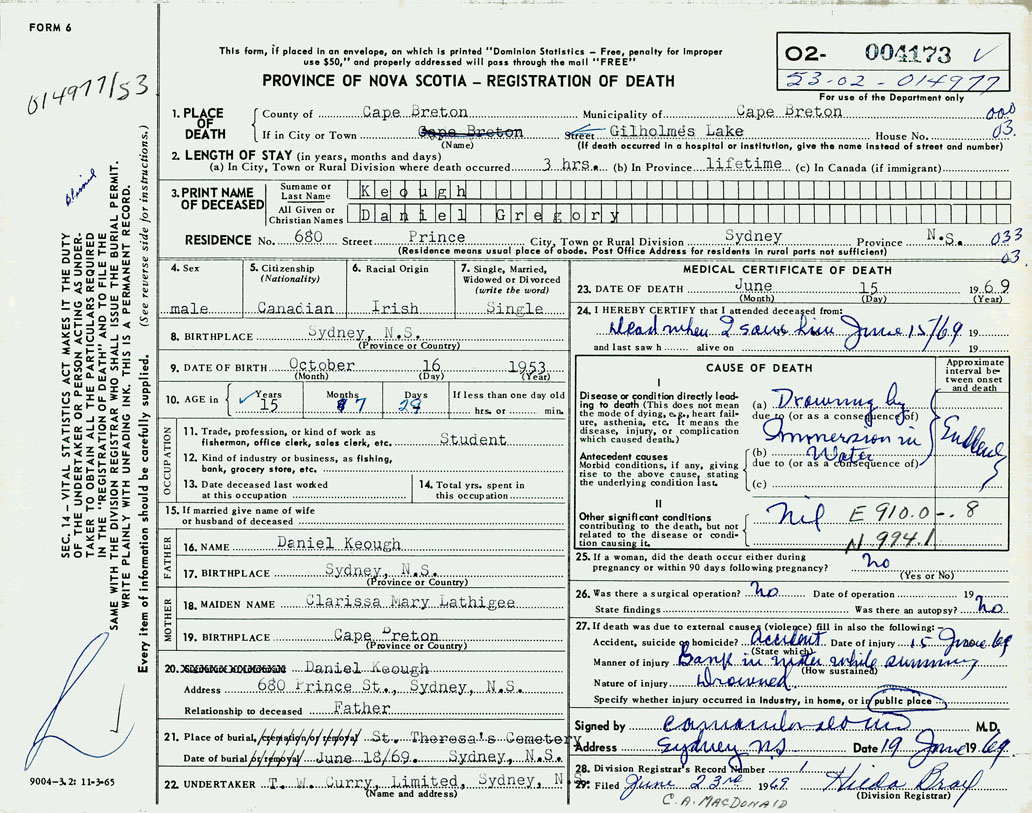 FORM 6
014977/53
This form, if placed in an envelope, on which is printed "Dominion Statistics – Free, penalty for improper
use $50," and properly addressed will pass through the mail "FREE"
PROVINCE OF NOVA SCOTIA – REGISTRATION OF DEATH
O2- 004173 ✓
53-02-014977
For use of the Department only
1. PLACE OF DEATH
County of Cape Breton Municipality of Cape Breton 000
If in City or Town Cape Breton Street Gilholmes Lake House No. 03.
(Name) (If death occurred in a hospital or institution, give the name instead of street and number)
2. LENGTH OF STAY (in years, months and days)
(a) In City, Town or Rural Division where death occurred 3 hrs. (b) In Province lifetime (c) In Canada (if immigrant)
3. PRINT NAME OF DECEASED
Surname or Last Name Keough
All Given or Christian Names Daniel Gregory
RESIDENCE No. 680 Street Prince City, Town or Rural Division Sydney Province N.S. 033
(Residence means usual place of abode. Post Office Address for residents in rural parts not sufficient) 03.
4. Sex
male
5. Citizenship
(Nationality)
Canadian
6. Racial Origin
Irish
7. Single, Married,
Widowed or Divorced
(write the word)
Single
8. BIRTHPLACE Sydney, N.S.
(Province or Country)
9. DATE OF BIRTH October 16 1953
(Month) (Day) (Year)
10. AGE in ✓ Years Months Days If less than one day old
15 7 29 hrs. or min.
OCCUPATION
11. Trade, profession, or kind of work as
fisherman, office clerk, sales clerk, etc. Student
12. Kind of industry or business, as fishing,
bank, grocery store, etc.
13. Date deceased last worked
at this occupation
14. Total yrs. spent in
this occupation
15. If married give name of wife
or husband of deceased
FATHER
16. NAME Daniel Keough
17. BIRTHPLACE Sydney, N.S.
(Province or Country)
MOTHER
18. MAIDEN NAME Clarissa Mary Lathigee
19. BIRTHPLACE Cape Breton
(Province or Country)
20. Daniel Keough
Address 680 Prince St., Sydney, N.S.
Relationship to deceased Father
21. Place of burial, cremation or removal St. Theresa's Cemetery
Date of burial or removal June 18/69. Sydney, N.S.
22. UNDERTAKER T. W. Curry, Limited, Sydney, N.S.
(Name and address)
MEDICAL CERTIFICATE OF DEATH
23. DATE OF DEATH June 15 1969
(Month) (Day) (Year)
24. I HEREBY CERTIFY that I attended deceased from:
Dead when I saw him June 15/69 19
and last saw h alive on 19
CAUSE OF DEATH
Approximate
interval be-
tween onset
and death
I
Disease or condition directly lead-
ing to death (This does not mean
the mode of dying, e.g., heart fail-
ure, asthenia, etc. It means the
disease, injury, or complication
which caused death.)
(a) Drowning by
due to (or as a consequence of)
Immersion in
(b) Water
due to (or as a consequence of)
(c)
Sudden
Antecedent causes
Morbid conditions, if any, giving
rise to the above cause, stating
the underlying condition last.
II
Other significant conditions
contributing to the death, but not
related to the disease or condi-
tion causing it.
Nil E 910.0 -. 8
N 994.1
25. If a woman, did the death occur either during
pregnancy or within 90 days following pregnancy? no
(Yes or No)
26. Was there a surgical operation? no Date of operation 19
State findings Was there an autopsy? no
27. If death was due to external causes (violence) fill in also the following:–
Accident, suicide or homicide? accident Date of injury 15 June 69
(State which)
Manner of injury Sank in water while swimming
(How sustained)
Nature of injury Drowned
Specify whether injury occurred in industry, in home, or in public place
Signed by M.D.
Address Sydney NS Date 19 June 1969
28. Division Registrar's Record Number 1
29. Filed June 23rd 1969 Hilda Bray
(Division Registrar)
C.A. MACDONALD
SEC. 14 – VITAL STATISTICS ACT MAKES IT THE DUTY
OF THE UNDERTAKER OR PERSON ACTING AS UNDER-
TAKER TO OBTAIN ALL THE PARTICULARS REQUIRED
IN THE "REGISTRATION OF DEATH" AND TO FILE THE
SAME WITH THE DIVISION REGISTRAR WHO SHALL ISSUE THE BURIAL PERMIT.
WRITE PLAINLY WITH UNFADING INK. THIS IS A PERMANENT RECORD.
Every item of information should be carefully supplied. (See reverse side for instructions.)
9004-3.2: 11-3-65